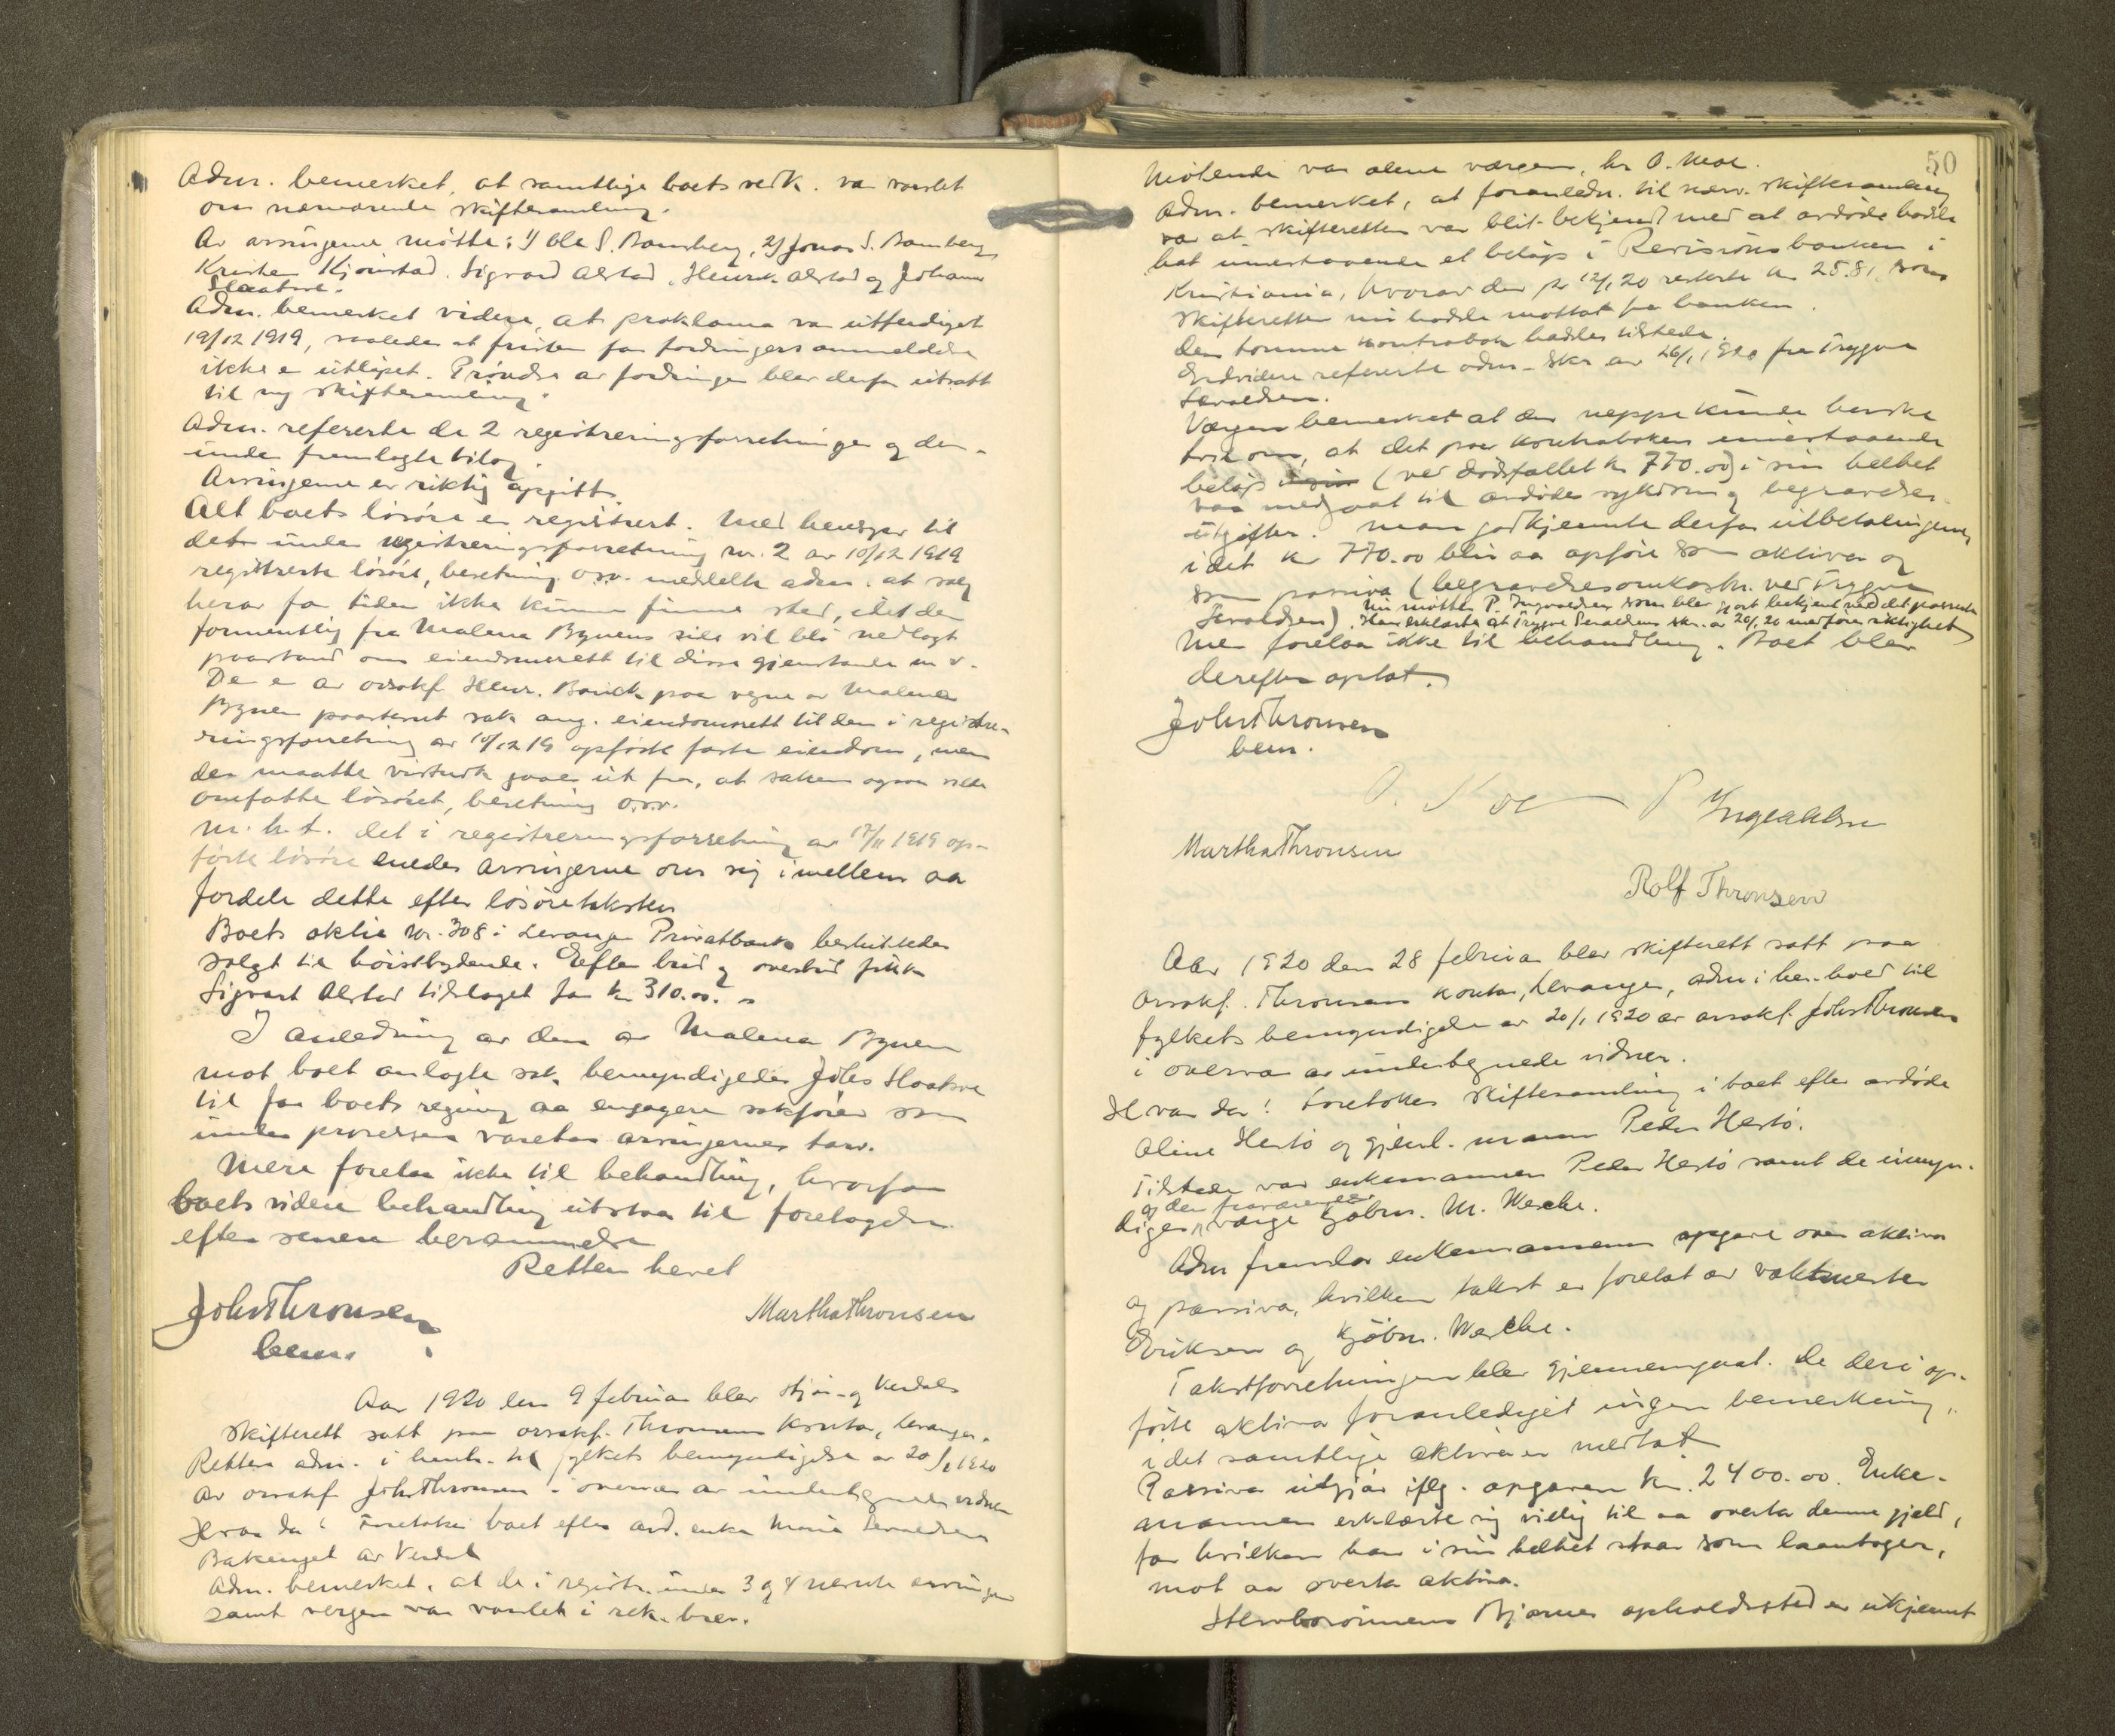 Adm. bemerket, at samtlige boets vedk. var varslet
om nærværende skiftesamling.
Av arvingerne møtte: 1) Ole S. Bamberg, 2) Jonas S. Bamberg,
Kristen Kjønstad, Sigvard Alstad, Henrik Alstad og Johann
Slaatsve.
Adm. bemerket videre, at proklama var utferdiget
19/12 1919, saaledes at fristen for fordringers anmeldelse
ikke er utløpet. Prøvelse av fordringer blev derfor utsatt
til ny skiftesamling.
Adm. refererte de 2 registreringsforretninger og der-
under fremlagte bilag.
Arvingerne er riktig opgitt.
Alt boets løsøre er registrert. Med hensyn til
det under registreringsforretning nr. 2 av 10/12 1919
registrerte løsøre, besetning o.s.v. meddelte adm. at salg
herav for tiden ikke kunne finne sted, idet der
formentlig fra Malena Bynens side vil bli nedlagt
paastand om eiendomsrett til disse gjenstande m. v.
Der er av ovsakf. Henr. paa vegne av Malena
Bynen paastevnt sak ang. eiendomsrett til den i registre-
ringsforretning av 10/12 19 opførte faste eiendom, men
der maatte gaaes ut fra, at saken ogsaa vilde
omfatte løsøret, besetning o.s.v.
M. h. t. det i registreringsforretning av 17/11 1919 op-
førte løsøre enedes arvingerne om sig imellem aa
fordele dette efter løsøretaksten
Boets aktie nr. 308 i Levanger Privatbank besluttedes
solgt til høistbydende. Efter bud og overbud fikk
Sigvart Alstad tilslaget for kr. 310.00.
I anledning av den av Malena Bynen
mot boet anlagte sak, bemyndigedes Johs Slaatsve
til for boets regning aa engagere sakfører som
under prosessen varetar arvingernes tarv.
Mere forelaa ikke til behandling, hvorfor
boets videre behandling utstaar til foretagelse
efter senere berammelse
Retten hevet
Johs Thronsen
bem.
Martha Thronsen
Aar 1920 den 9 februar blev Stjør- og Verdals
skifterett satt paa ovsakf. Thronsens kontor, Levanger.
Retten adm. i henh. til fylkets bemyndigelse av 20/1 1920
av ovsakf. Johs Thronsen i overvær av undertegnede vidner
Hvor da! Foretokes boet efter avd. enke Maria
Bakenget av Verdal
Adm. bemerket, at de i registr. under 3 og 4 nevnte arvinger
samt vergen var varslet i rek. brev.
50
Møtende var alene værgen, hr O. Moe.
Adm. bemerket, at foranledn. til nærv. skiftesamling
var at skifteretten var blit bekjendt med at avdøde hadde
hat innestaaende et beløp i Revisionsbanken i
Kristiania, hvorav der pr 12/1 20 resterte kr 25.81 som
skifteretten nu hadde mottat fra banken.
Den tomme kontrabok haddes tilstede.
Endvidere refererte adm. skr. av 26/1 1920 fra Trygve
Sevaldsen.
Værgen bemerket at der neppe kunde herske
tvil om, at det paa kontraboken innestaaende
beløp (ved dødsfallet kr 770.00) i sin helhet
var medgaat til avdødes sykdom og begravelses-
utgifter. Man godkjennte derfor utbetalingerne,
idet kr 770.00 blir aa opføre som aktiva og
som passiva (begravelsesomkostn. ved Trygve
Sevaldsen). Nu møtte P. Ingvaldsen som blev gjort bekjent med det passerte
Han erklærte at Trygve Sevaldsens skr. av 26/1 20 medfører riktighet
Mer forelaa ikke til behandling. Boet blev
derefter oplat.
Johs Thronsen
bem.
O. Moe P Ingvaldsen
Martha Thronsen
Rolf Thronsen
Aar 1920 den 28 februar blev skifterett satt paa
ovsakf. Thronsens kontor, Levanger, adm i hen-hold til
fylkets bemyndigelse av 20/1 1920 av ovsakf. Johs Thronsen
i overvær av undertegnede vidner.
Hvor da! Foretokes skiftesamling i boet efter avdøde
Oline Hestø og gjenl. mann Peder Hestø.
Tilstede var enkemannen Peder Hestø samt de umyn-
og den fraværendes
diges værge kjøbm. M. Wesche.
Adm fremla enkemannens opgave over aktiva
og passiva, hvilken takst er foretat av vaktmester
Eriksen og kjøbm. Wesche.
Takstforretningen blev gjennemgaat. De deri op-
førte aktiva foranlediget ingen bemerkning,
idet samtlige aktiva er medtat
Passiva utgjør iflg. opgaven kr. 2400.00. Enke-
mannen erklærte sig villig til aa overta denne gjeld,
for hvilken han i sin helhet staar som laantager,
mot aa overta aktiva.
Stervbosønnens Bjarnes opholdssted er ukjennt